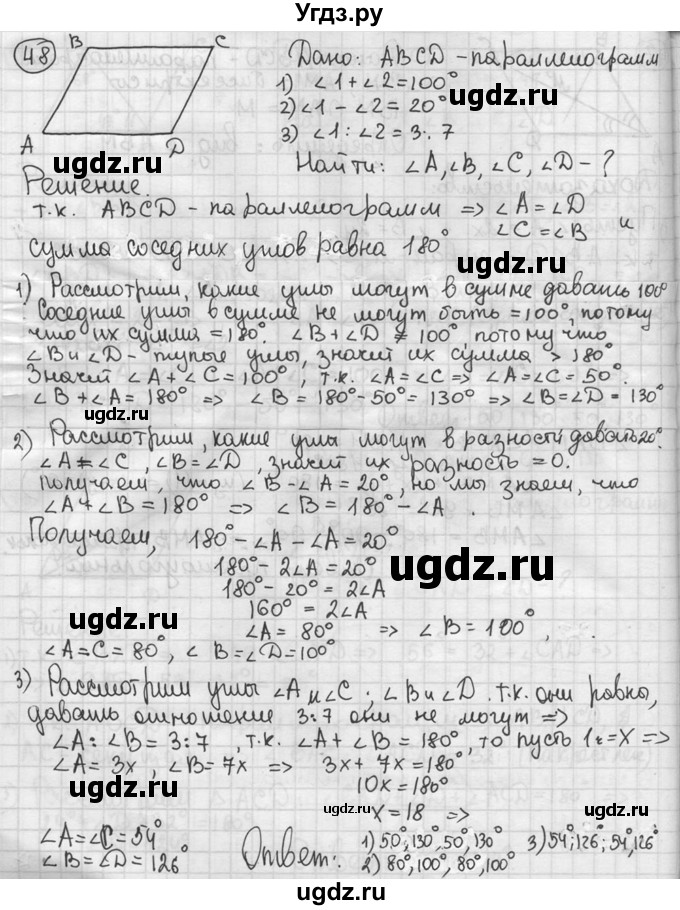 Угдз.ру
48
B C
A D
Дано: ABCD - параллелограмм
1) ∠1 + ∠2 = 100°
2) ∠1 - ∠2 = 20°
3) ∠1 : ∠2 = 3:7
Найти: ∠A, ∠B, ∠C, ∠D - ?
Решение.
т.к. ABCD - параллелограмм => ∠A = ∠D
∠C = ∠B и
сумма соседних углов равна 180°
1) Рассмотрим, какие углы могут в сумме давать 100°
Соседние углы в сумме не могут быть = 100°, потому
что их сумма = 180°. ∠B + ∠D ≠ 100°, потому что
∠B и ∠D - тупые углы, значит их сумма > 180°
Значит ∠A + ∠C = 100°, т.к. ∠A = ∠C => ∠A = ∠C = 50°.
∠B + ∠A = 180° => ∠B = 180° - 50° = 130° => ∠B = ∠D = 130°
2) Рассмотрим, какие углы могут в разности давать 20°.
∠A = ∠C, ∠B = ∠D, значит их разность = 0.
Получаем, что ∠B - ∠A = 20°, но мы знаем, что
∠A + ∠B = 180° => ∠B = 180° - ∠A.
Получаем, 180° - ∠A - ∠A = 20°
180° - 2∠A = 20°
180° - 20° = 2∠A
160° = 2∠A
∠A = 80° => ∠B = 100°,.
∠A = C = 80°, ∠B = ∠D = 100°
3) Рассмотрим углы ∠A и ∠C; ∠B и ∠D. т.к. они равны,
давать отношение 3:7 они не могут =>
∠A : ∠B = 3:7, т.к. ∠A + ∠B = 180°, то пусть 1ч = X =>
∠A = 3x, ∠B = 7x => 3x + 7x = 180°
10x = 180°
x = 18 =>
∠A = ∠C = 54°
∠B = ∠D = 126°
Ответ: 1) 50°; 130°, 50°, 130° 3) 54°; 126°; 54°, 126°
2) 80°, 100°, 80°, 100°
ugdz.ru
ugdz.ru
ugdz.ru
ugdz.ru
ugdz.ru
ugdz.ru
ugdz.ru
ugdz.ru
ugdz.ru
ugdz.ru
ugdz.ru
ugdz.ru